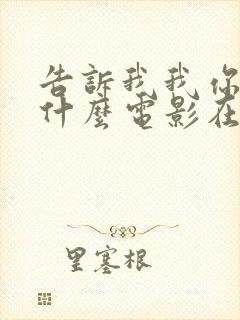 告訴我我你
什麼電影在
里塞根